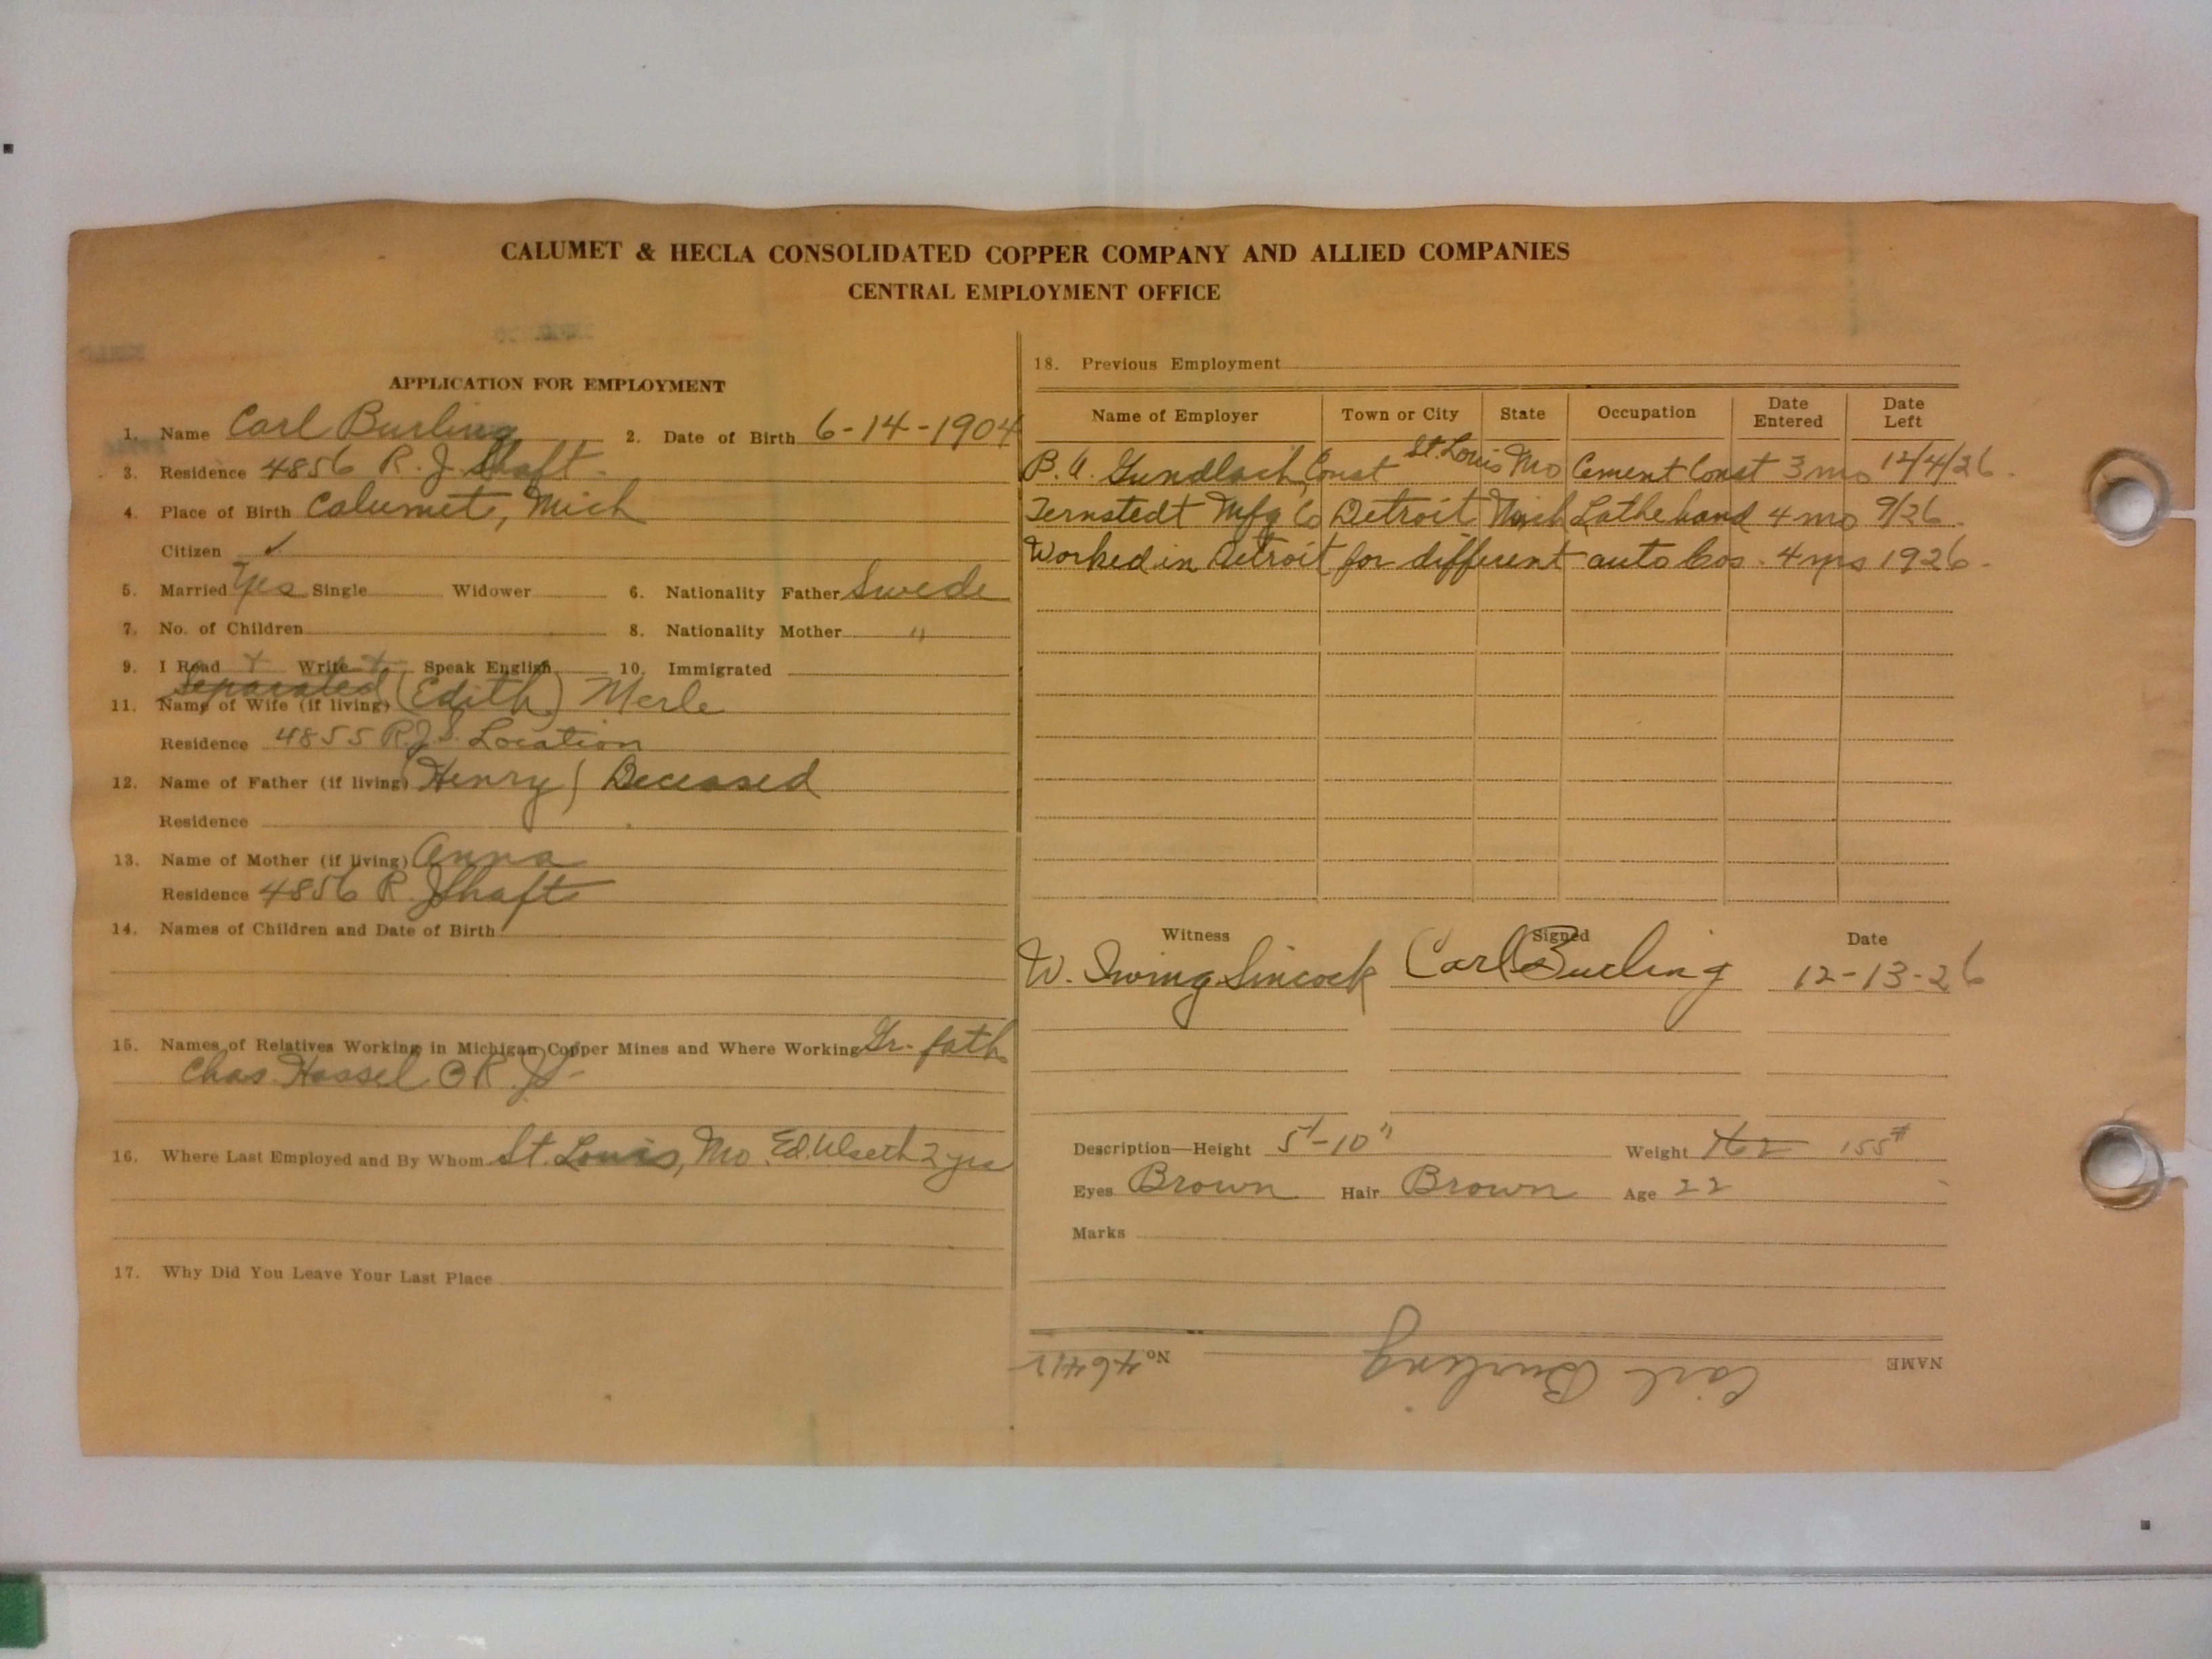 CALUMET & HECLA CONSOLIDATED COPPER COMPANY AND ALLIED COMPANIES
CENTRAL EMPLOYMENT OFFICE
APPLICATION FOR EMPLOYMENT
1. Name Carl Burling 2. Date of Birth 6-14-1904
3. Residence 4856 R. J. Shaft.
4. Place of Birth Calumet, Mich
Citizen ✓
5. Married Yes Single Widower 6. Nationality Father Swede
7. No. of Children 8. Nationality Mother "
9. I Read + Write + Speak English 10. Immigrated
Separated
11. Name of Wife (if living) (Edith) Merle
Residence 4855 R.J.S. Location
12. Name of Father (if living) (Henry) Deceased
Residence
13. Name of Mother (if living) Anna
Residence 4856 R. J Shaft
14. Names of Children and Date of Birth
15. Names of Relatives Working in Michigan Copper Mines and Where Working Gr. fath
Chas. Hassel
16. Where Last Employed and By Whom St. Louis, Mo. Ed. 2 yrs
17. Why Did You Leave Your Last Place
18. Previous Employment
Name of Employer Town or City State Occupation Date Entered Date Left
B. A. Gundlach Const St. Louis Mo Cement Const 3 mo 12/4/26.
Ternstedt Mfg Co Detroit Mich Lathe hand 4 mo 9/26.
Worked in Detroit for different auto Cos. 4 yrs 1926.
Witness Signed Date
W. Irving Sincock Carl Burling 12-13-26
Description—Height 5'-10" Weight 162 155#
Eyes Brown Hair Brown Age 22
Marks
NAME Carl Burling No. 46412